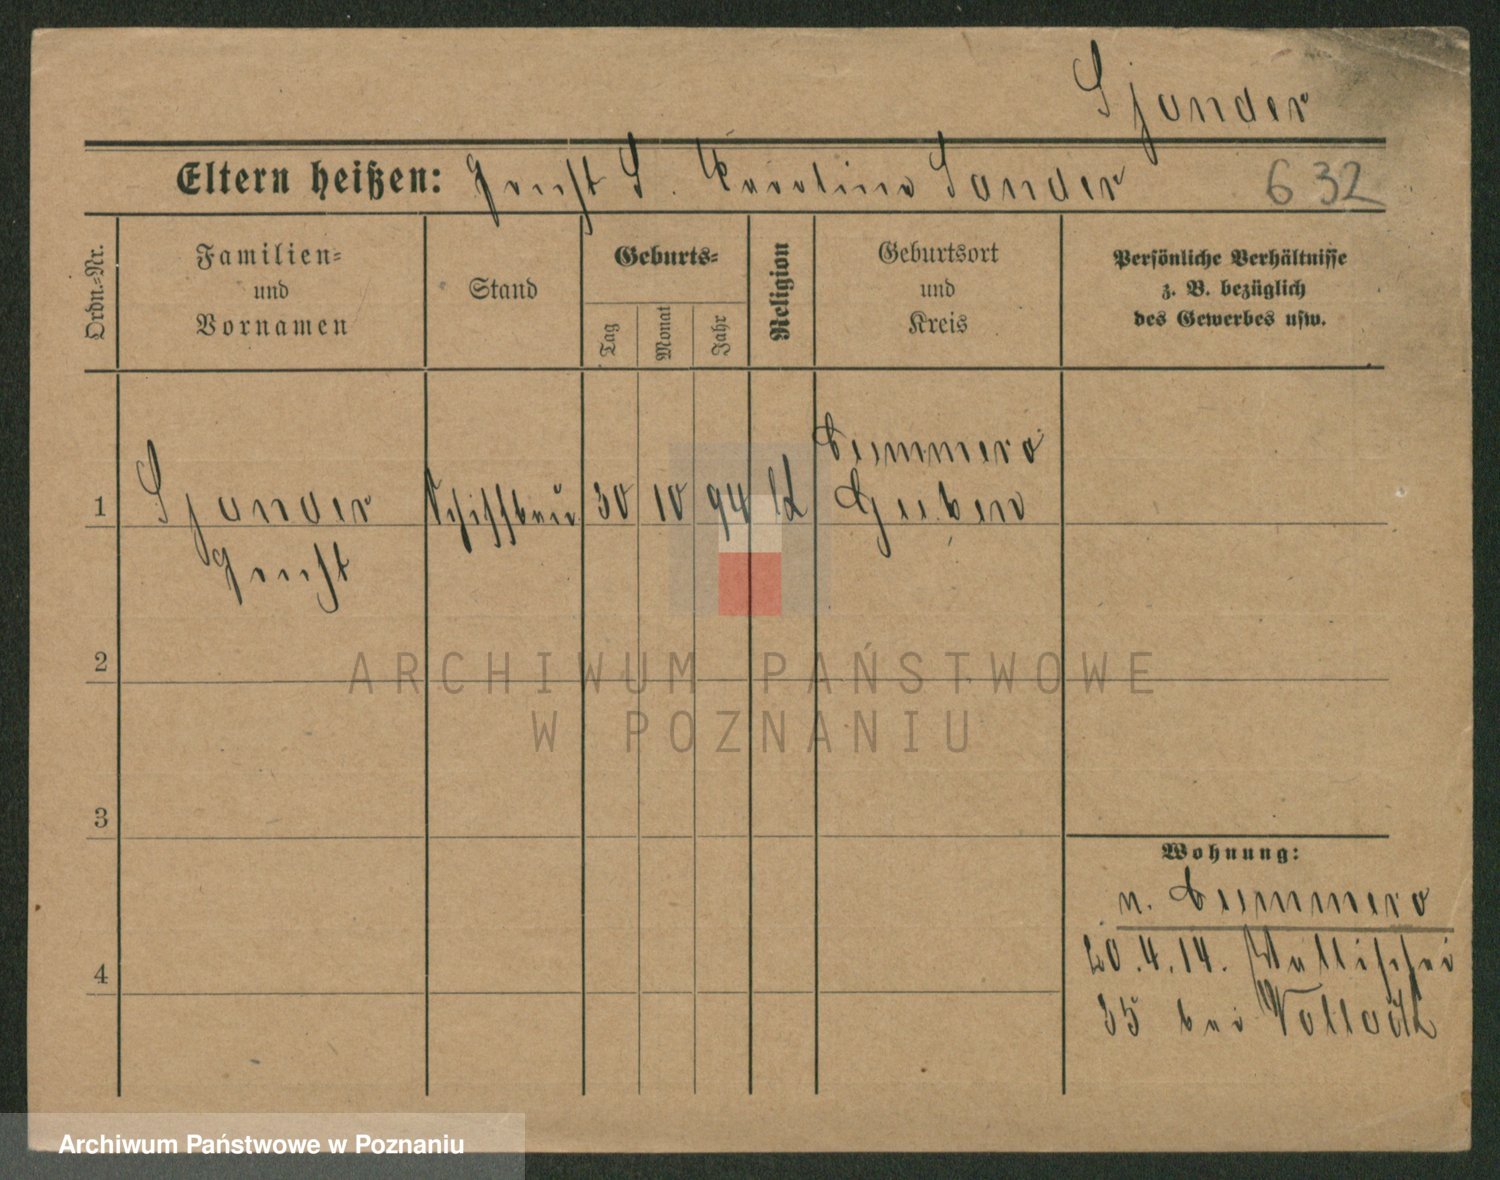 Sjander
Eltern heißen: Ernst S. Karoline Sander
632
Ordn.-Nr.
Familien-
und
Vornamen
Stand
Geburts-
Tag
Monat
Jahr
Religion
Geburtsort
und
Kreis
Persönliche Verhältnisse
z. B. bezüglich
des Gewerbes usw.
1
Sjander
Ernst
Schiffbau
30
10
94
Kummero
Guben
2
ARCHIWUM PAŃSTWOWE
W POZNANIU
3
Wohnung:
n. Kummero
20.4.14. Wallischei
35 bei
4
Archiwum Państwowe w Poznaniu